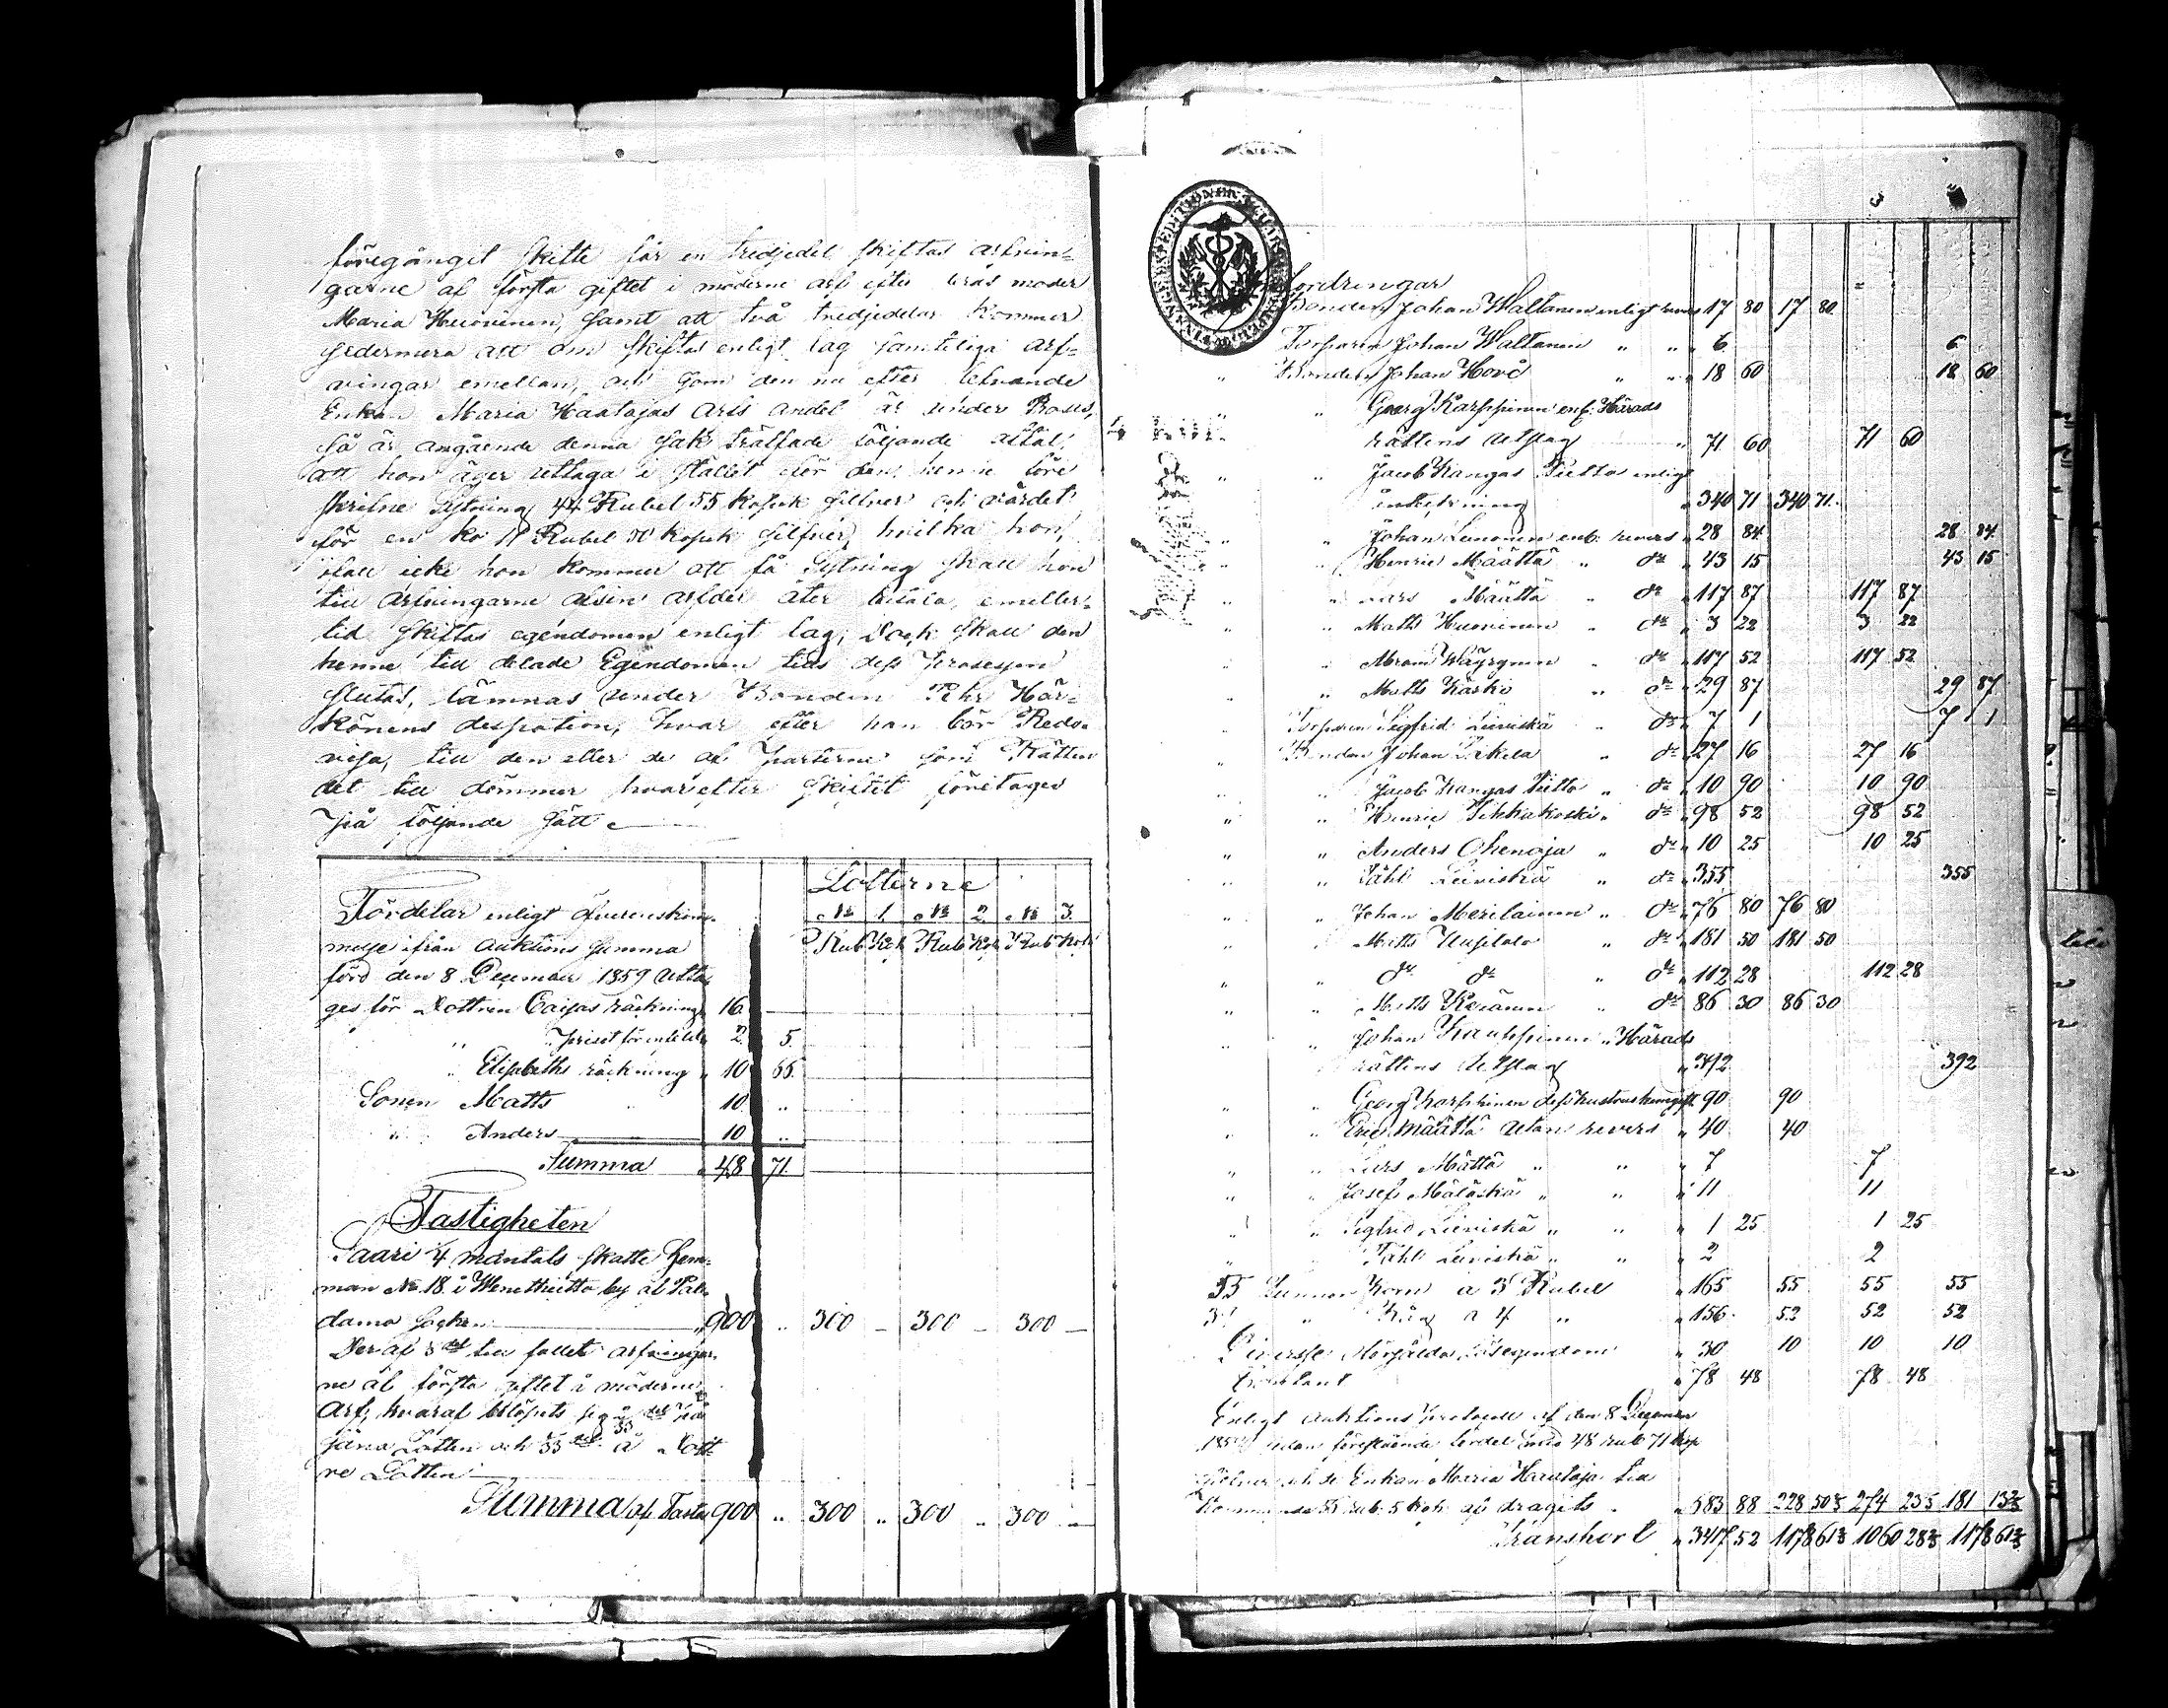 föregånget skifte får en tredjedel skiftas arfvin-
garne af första giftet i möderne arf efter deras moder
Maria Huovinen, samt att två tredjedelar kommer
sedermera att om skiftas enligt lag samteliga arf-
vingar emellan, och som den nu efter lefvande
Enkan Maria Haatajas arfs andel är under Proses,
så är angående denna sak träffade följande aftal:
att hon äger uttaga i stället för den henne före
skrifne Sytning 44 Rubel 55 Kopek silfver och värdet
för en ko 11 Rubel 50 Kopek silfver, hvilka hon,
ifall icke hon kommer att få Sytning skall hon
till arfvingarne af sin arfdel åter betala, emeller-
tid skiftas egendomen enligt lag; Dock skall den
henne till delade Egendomen tills dess Prosessen
slutas, lämnas under Bonden Pehr Här-
könens desposition, hvar efter han bör Redo-
visa, till den eller de af Parterne som Rätten
det till dömmer hvarefter skiftet företages
på följande sätt
Lotterne
Fördelar enligt Öfverenskom-
No 1. No 2. No 3.
melse ifrån Auktions Summa
Rub Kop Rub Kop Rub Kop
förd den 8 December 1859 utta-
ges för Dottren Caisas räkning 16.
" Priset för 2. 5.
" Elisabeths räkning " 10 65.
Sonen Matts " 10. "
" Anders 10 "
Summa " 48 71.
Fastigheten
Saari 4 mantals skatte Hem-
man No 18 i Wenetheitto by af Pal-
damo Socken " 900 " 300 – 300 – 300 –
Deraf 3 del till fallet arfvingar-
ne af första giftet i möderne
Arf, hvaraf belöpets sig del på
Söna Lotten och å Dott-
re Lotten
Summa af Fasta 900 " 300 " 300 " 300 –
Fordringar
Bonden Johan Waltanen enligt revers 17 80 17 80
Torparen Johan Waltanen " " " 6. 6
" Bonden Johan Hovi " " " 18 60 18 60
" " Georg Karppinen enl. Härads
rättens Utslag " 71 60 71 60
" " Jacob Kangas Pietto enligt
" 340 71 340 71.
" Johan Leinonen enl. revers " 28 84 28 84
" " Henric Määttä " do " 43 15 43 15
" " Lars Määttä " do " 117 87 117 87
" " Matts Huovinen " do " 3 22 3 22
" " Abram Wäyrynen " do " 117 52 117 52
" " Matts Karsko " do " 29 87 29 87
" Torparen Sigfrid Leiviskä " do " 7 1 7 1
" Bonden Johan Pikela " do " 27 16 27 16
" " Jacob Kangas Pietto " do " 10 90 10 90
" " Henric Tikkakoski " do " 98 52 98 52
" " Anders Ohenoja " do " 10 25 10 25
" " Påhl Leiviskä " do " 355 355
" " Johan Meriläinen " do " 76 80 76 80
" " Matts Uusitalo " do " 181 50 181 50
" do do " do " 112 28 112 28
" " Matts Keränen " do " 86 30 86 30
" " Johan Kauppinen " Härads
rättens Utslag " 392 392
" " Georg Karppinen dess hustrus hemgift " 90 90
" " Eric Määttä utan revers " 40 40
" " Lars Mättä " " " 7 7
" " Josef Mäläskä " " " 11 11
" " Sigfrid Leiviskä " " " 1 25 1 25
" " Påhl Leiviskä " " " 2 2
55 Tunnor Korn a 3 Rubel " 165 55 55 55
" Råg a 4 " " 156 52 52 52
Diversse lösegendom " 30 10 10 10
Kontant " 78 48 78 48
Enligt Auktions Protocoll af den 8 December
1859 sedan förestående fördel med 48 rub 71 kop
silfver och de Enkan Maria Haataja till
kommande 55 rub. 5 kop. af dragits " 583 88 228 50⅔ 274 23⅔ 181 13⅔
Transport " 3417 52 1178 61⅔ 1060 28⅔ 1178 61⅔